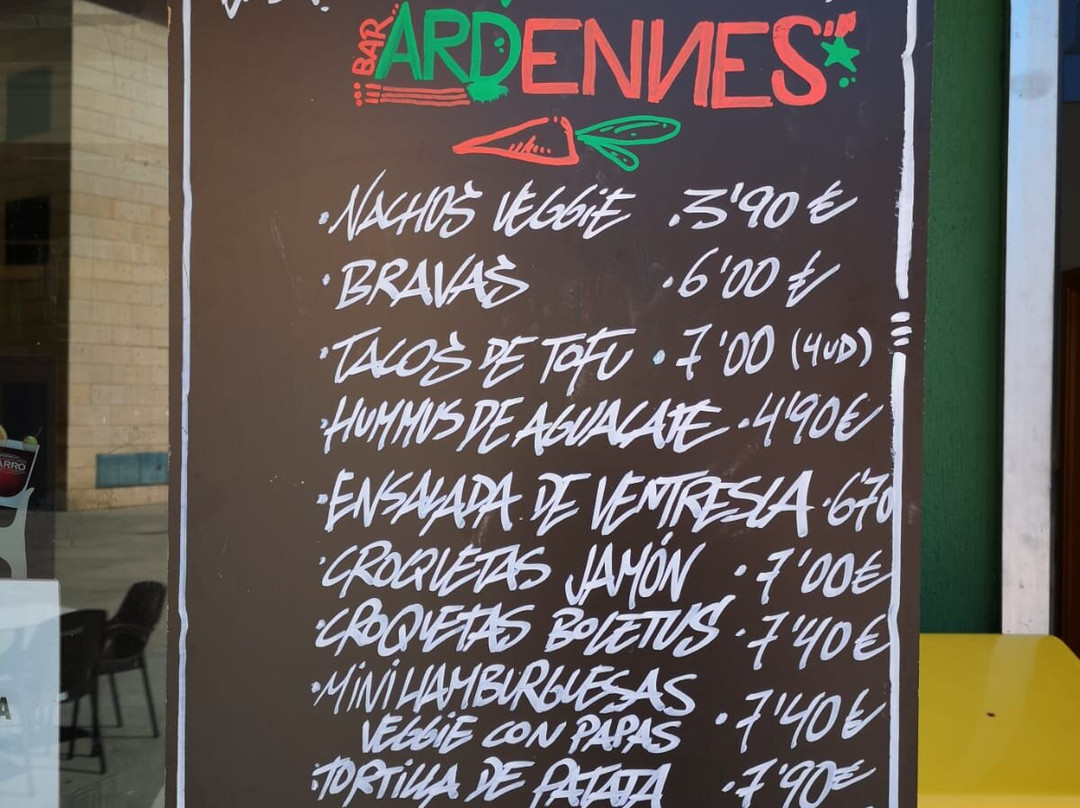 BAR ARDENNES
·NACHOS VEGGIE ·3'90 €
·BRAVAS ·6'00 €
·TACOS DE TOFU ·7'00 (4UD)
·HUMMUS DE AGUACATE ·4'90€
·ENSALADA DE VENTRESLA ·6'70
·CROQUETAS JAMÓN ·7'00€
·CROQUETAS BOLETUS ·7'40€
·MINI HAMBURGUESAS
VEGGIE CON PAPAS ·7'40€
·TORTILLA DE PATATA ·7'90€